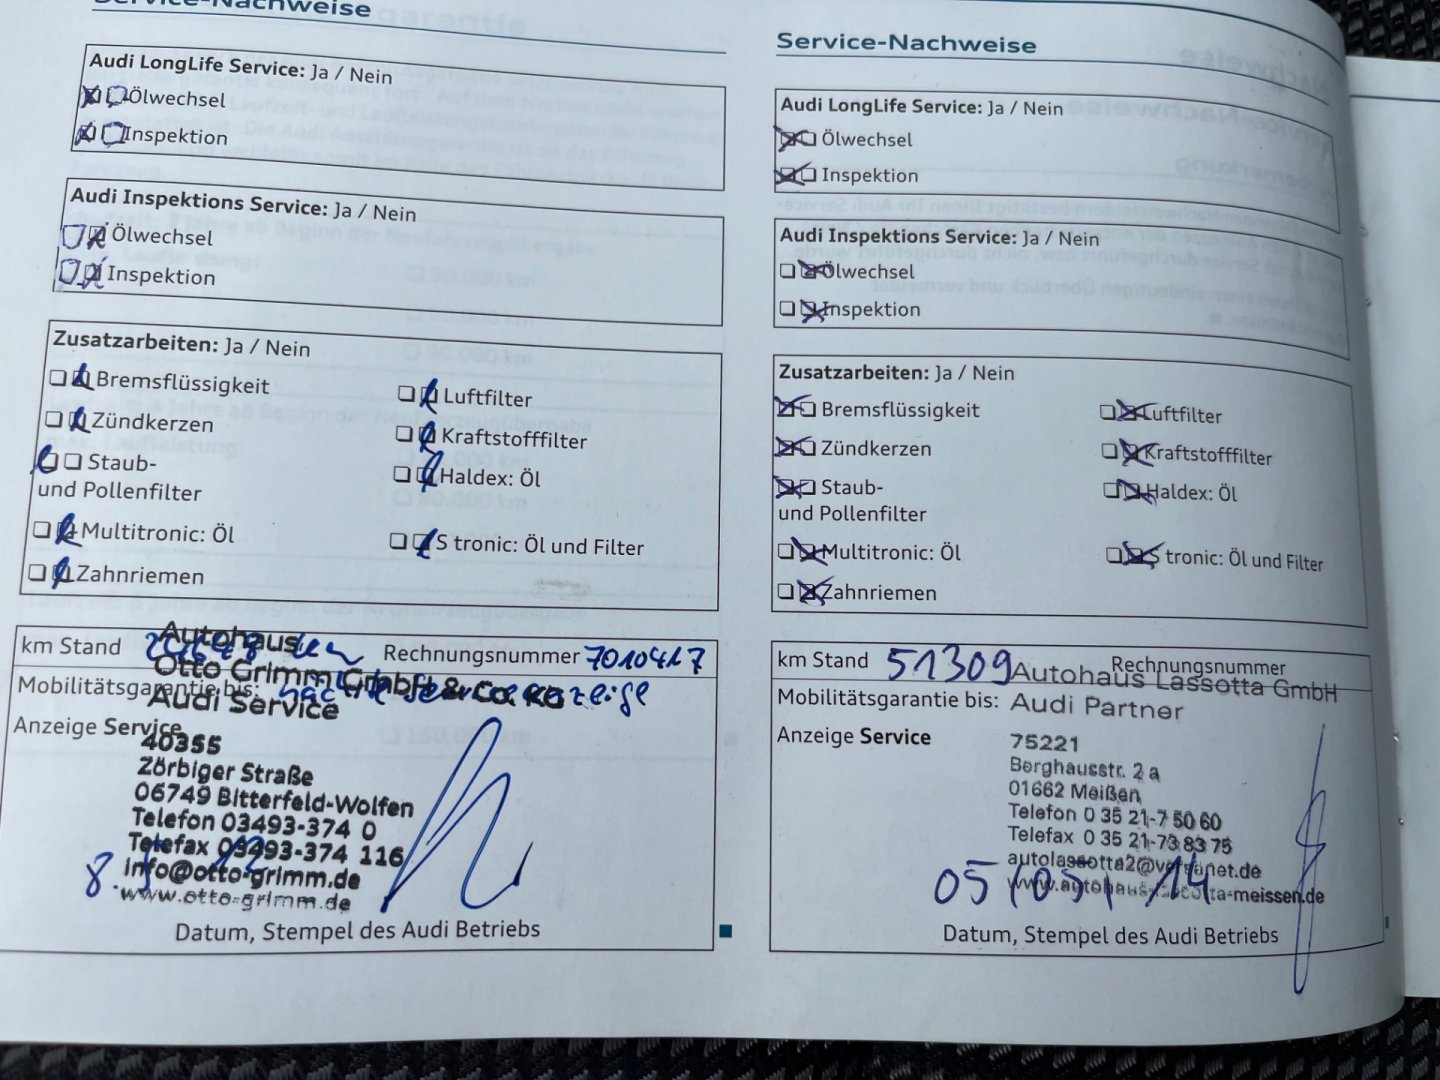 Service-Nachweise
Audi LongLife Service: Ja / Nein
Ölwechsel
Inspektion
Audi Inspektions Service: Ja / Nein
Ölwechsel
Inspektion
Zusatzarbeiten: Ja / Nein
Bremsflüssigkeit
Luftfilter
Zündkerzen
Kraftstofffilter
Staub-
und Pollenfilter
Haldex: Öl
Multitronic: Öl
S tronic: Öl und Filter
Zahnriemen
km Stand
Rechnungsnummer 7010417
Mobilitätsgarantie bis: nach Serviceanzeige
Anzeige Service
Autohaus
Otto Grimm GmbH & Co. KG
Audi Service
40355
Zörbiger Straße
06749 Bitterfeld-Wolfen
Telefon 03493-374 0
Telefax 03493-374 116
info@otto-grimm.de
www.otto-grimm.de
Datum, Stempel des Audi Betriebs
Service-Nachweise
Audi LongLife Service: Ja / Nein
Ölwechsel
Inspektion
Audi Inspektions Service: Ja / Nein
Ölwechsel
Inspektion
Zusatzarbeiten: Ja / Nein
Bremsflüssigkeit
Luftfilter
Zündkerzen
Kraftstofffilter
Staub-
und Pollenfilter
Haldex: Öl
Multitronic: Öl
S tronic: Öl und Filter
Zahnriemen
km Stand 51309
Rechnungsnummer
Mobilitätsgarantie bis:
Anzeige Service
Autohaus Lassotta GmbH
Audi Partner
75221
Berghausstr. 2 a
01662 Meißen
Telefon 0 35 21-7 50 60
Telefax 0 35 21-73 83 75
autolassotta2@versanet.de
www.autohaus-lassotta-meissen.de
05/05/14
Datum, Stempel des Audi Betriebs